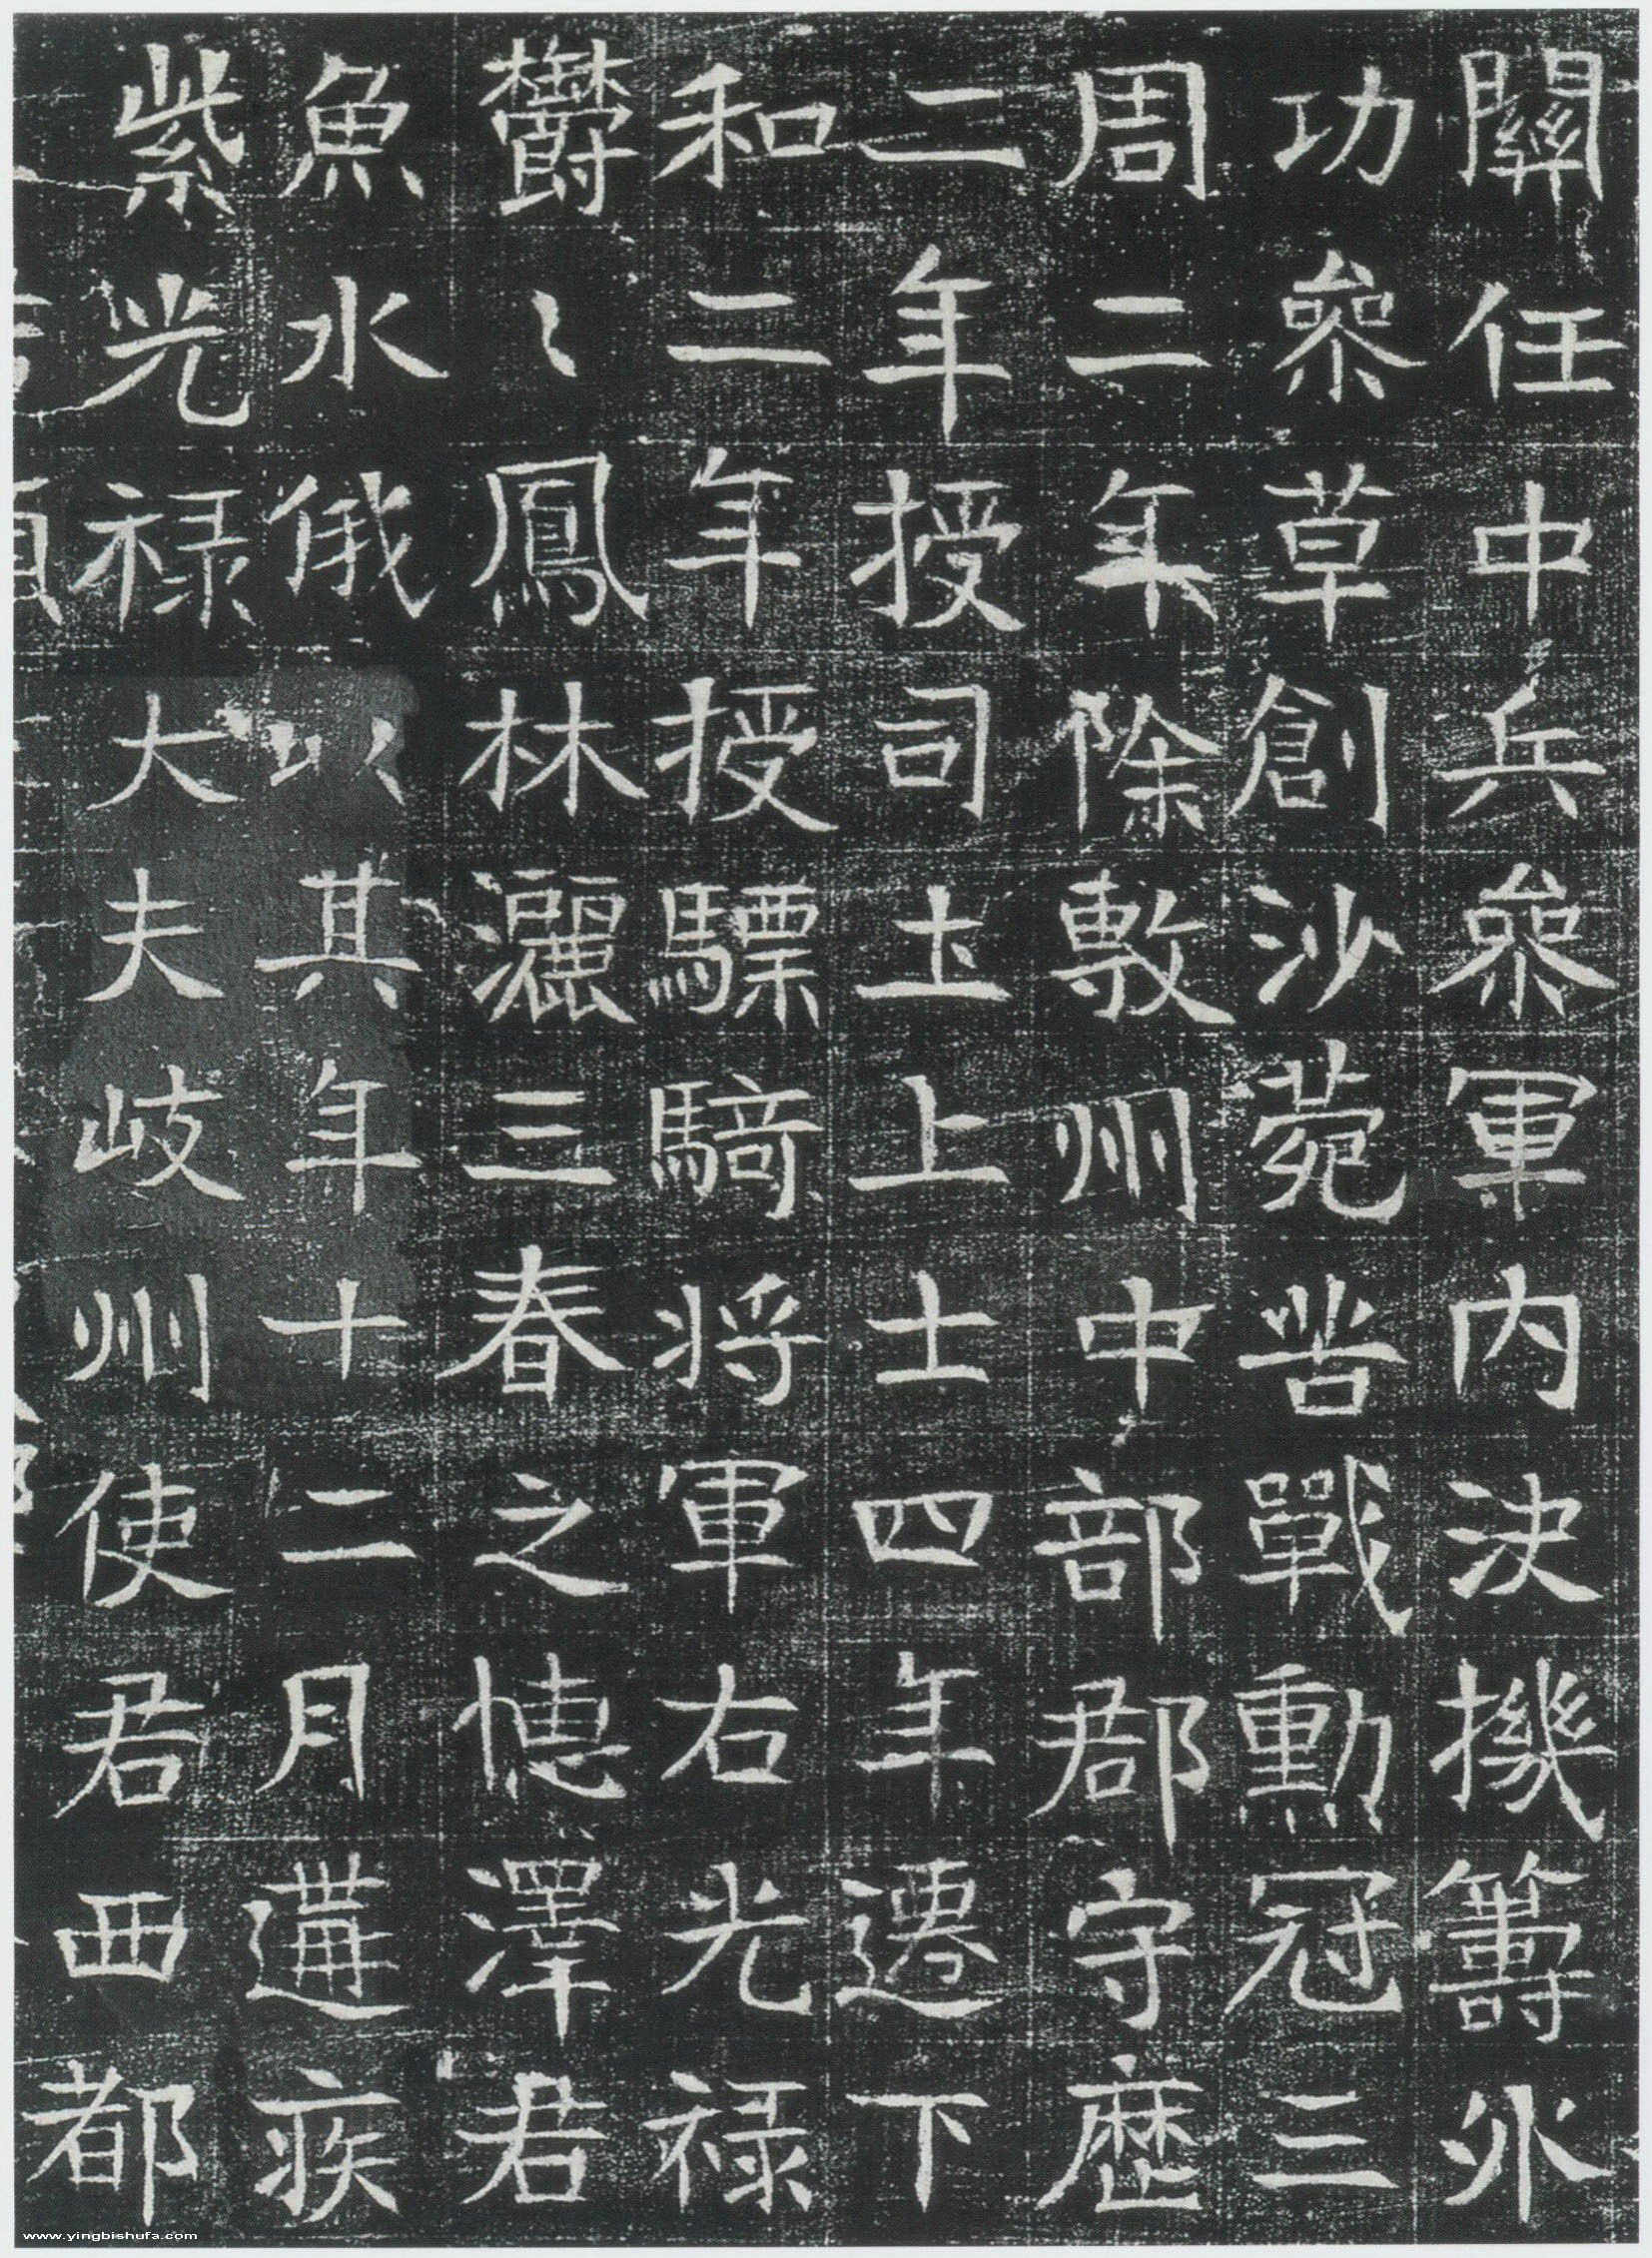 關任中兵叅軍內決機籌外
功叅草創沙菀苦戰勳冠三
周二年除敷州中部郡守歷
二年授司土上士四年遷下
和二年授驃騎将軍右光禄
鬱〻鳳林灑三春之德澤君
魚水俄以其年十二月遘疾
紫光禄大夫岐州使君西都
www.yingbishufa.com